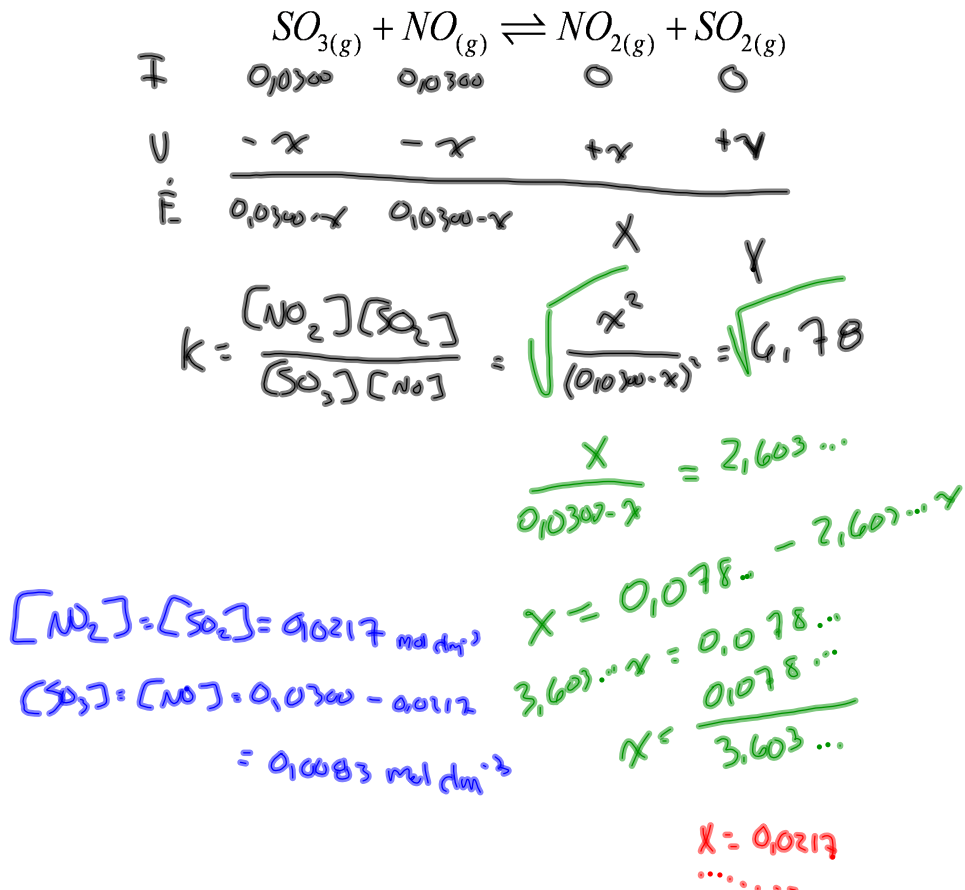 SO₃(g) + NO(g) ⇌ NO₂(g) + SO₂(g)
I 0,0300 0,0300 0 0
U - x - x +x +x
É 0,0300-x 0,0300-x x x
K = [NO₂][SO₂] / [SO₃][NO] = √(x² / (0,0300-x)²) = √6,78
x / (0,0300-x) = 2,603...
x = 0,078.. - 2,603...x
3,603...x = 0,078...
x = 0,078... / 3,603...
x = 0,0217
[NO₂] = [SO₂] = 0,0217 mol dm⁻³
[SO₃] = [NO] = 0,0300 - 0,0217
= 0,0083 mol dm⁻³